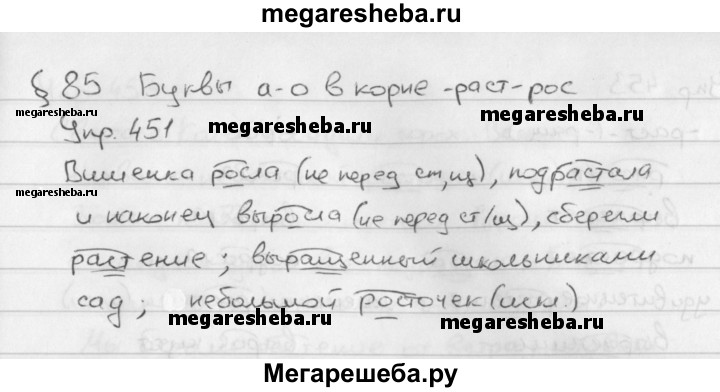 megaresheba.ru
§ 85 Буквы а-о в корне -раст-рос
Упр. 451 megaresheba.ru megaresheba.ru
Вишенка росла (не перед ст,щ), подрастала
megaresheba.ru
и наконец выросла (не перед ст/щ), сберегли
растение; выращенный школьниками
сад; небольшой росточек (искл.)
megaresheba.ru megaresheba.ru
Мегарешеба.ру